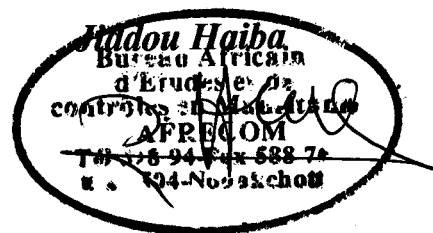 Jiddou Haiba
Bureau Africain
d'Etudes et de
contrôles en Mauritanie
AFRECOM
Fax 588
Nouakchott